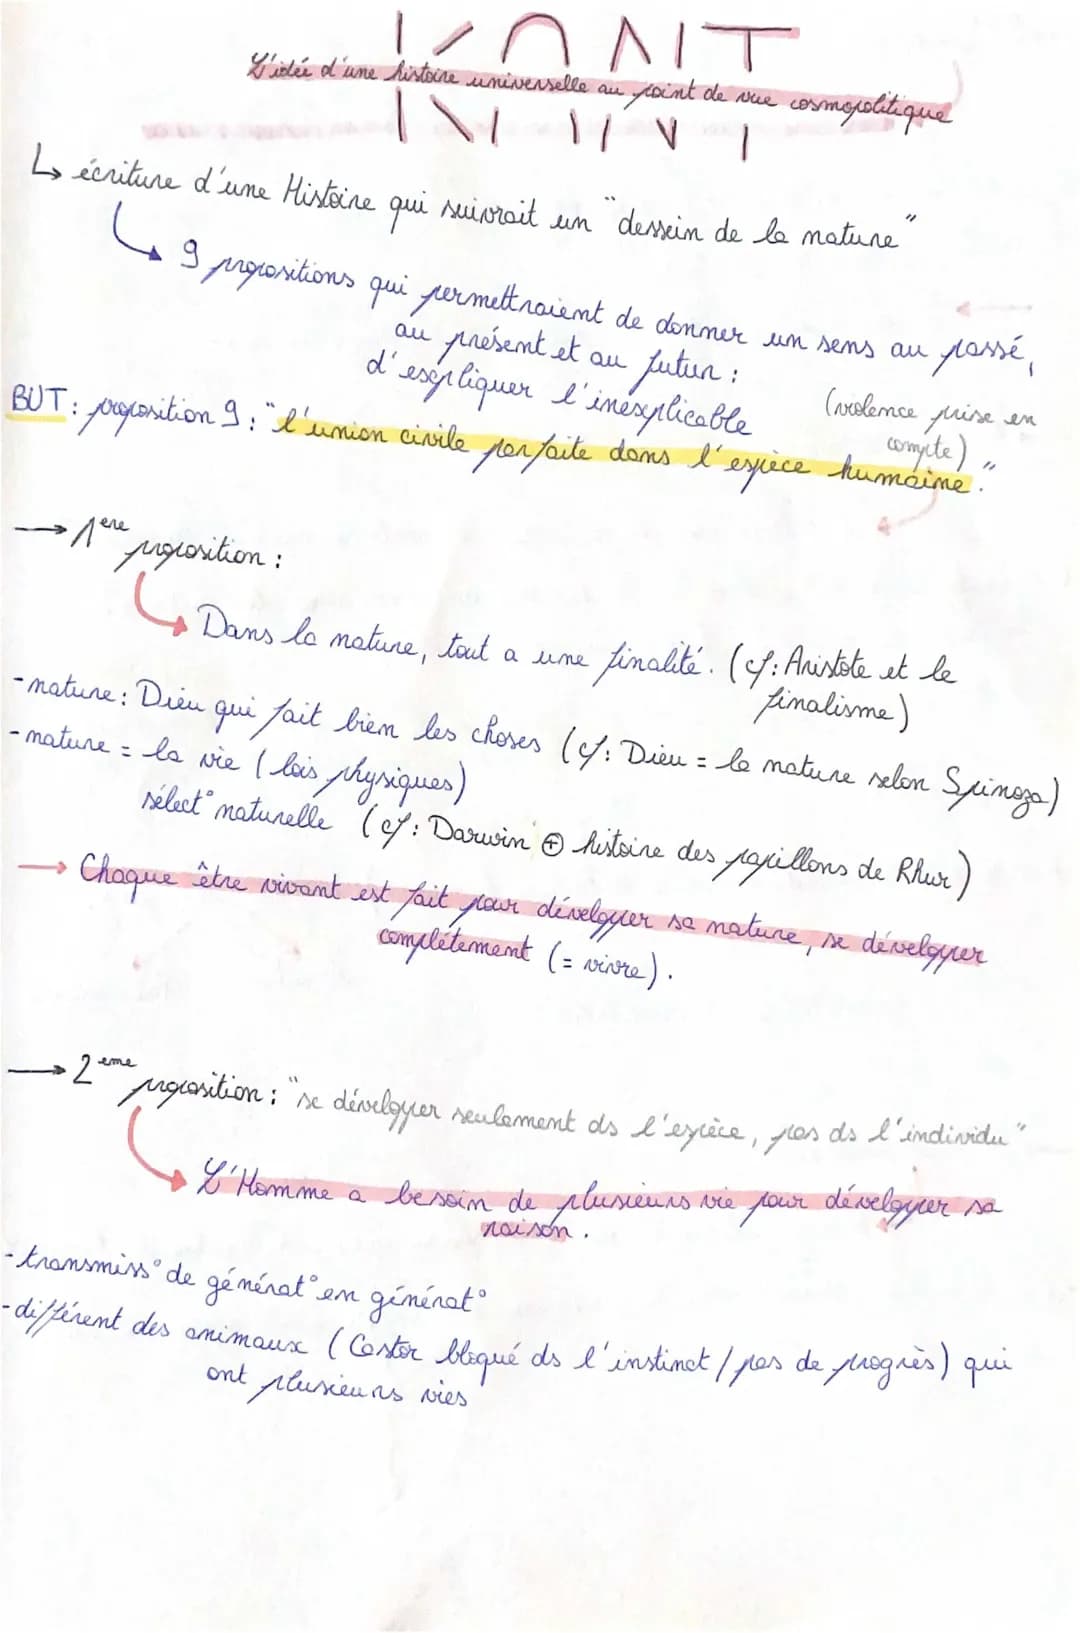 KANT
L'idée d'une histoire universelle au point de vue cosmopolitique
↳ écriture d'une Histoire qui suivrait un "dessein de la nature"
↳ 9 propositions qui permettraient de donner un sens au passé,
au présent et au futur :
d'expliquer l'inexplicable (violence prise en
compte)
BUT : proposition 9 : "l'union civile parfaite dans l'espèce humaine."
→ 1ère proposition :
↳ Dans la nature, tout a une finalité. (cf : Aristote et le
finalisme)
- nature : Dieu qui fait bien les choses (cf : Dieu = la nature selon Spinoza)
- nature = la vie (lois physiques)
sélect° naturelle (cf : Darwin ⊕ histoire des papillons de Rhur)
→ Chaque être vivant est fait pour développer sa nature, se développer
complétement (= vivre).
→ 2eme proposition : "se développer seulement ds l'espèce, pas ds l'individu"
↳ L'Homme a besoin de plusieurs vie pour développer sa
raison.
- transmiss° de générat° en générat°
- différent des animaux (Castor bloqué ds l'instinct / pas de progrès) qui
ont plusieurs vies